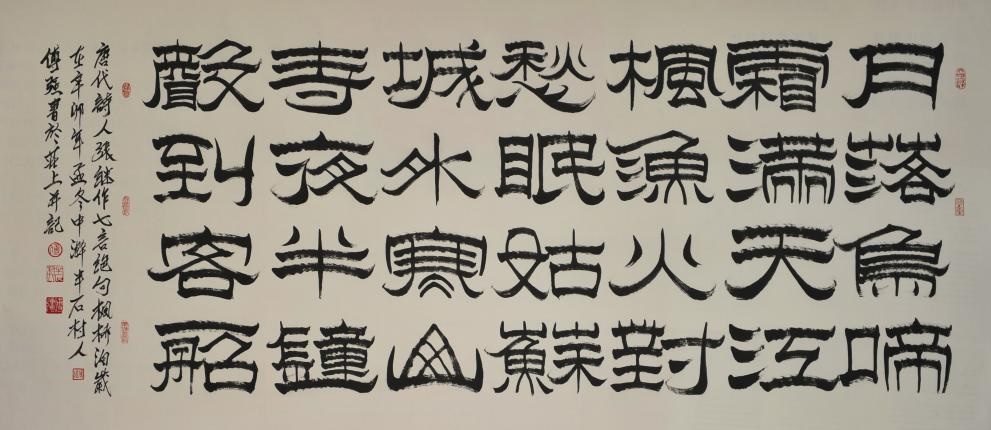 月落烏啼
霜滿天江
楓漁火對
愁眠姑蘇
城外寒山
寺夜半鐘
聲到客船
唐代詩人張継作七言絕句楓橋泊歲
在辛卯年孟冬中澣半石村人
傅書於莊上并記